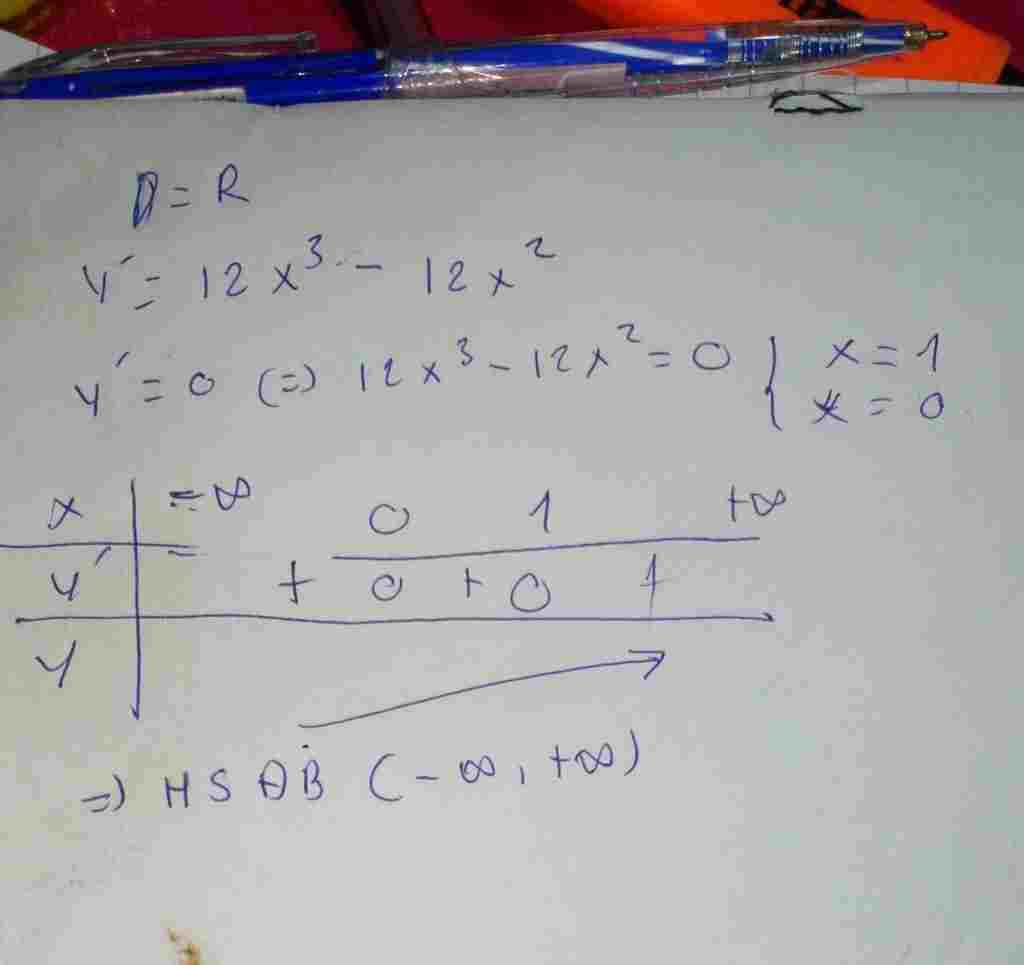 D = R
y' = 12x³ - 12x²
y' = 0 (=) 12x³ - 12x² = 0 { x = 1
x = 0
x -∞ 0 1 +∞
y' + 0 + 0 +
y
=) HS ĐB (-∞, +∞)